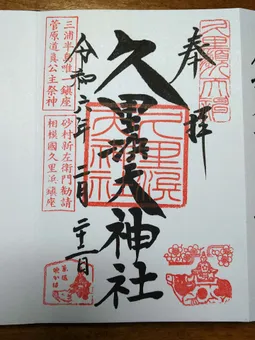 奉拝
久里浜天神社
令和六年二月二十一日
三浦半島唯一鎮座
菅原道真公主祭神
砂村新左衛門勧請
相模國久里浜鎮座
久里浜
天神社